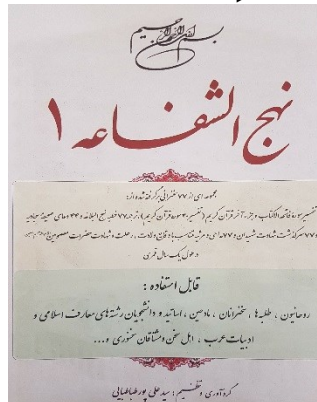 بسم الله الرحمن الرحیم
نهج الشفاعه ۱
مجموعه ای از ۷۷ سخنرانی برگرفته شده از:
تفسیر سوره فاتحه الکتاب و جزء آخر قرآن کریم (تفسیر ۴۰ سوره قرآن کریم)، شرح ۷۷ خطبه نهج البلاغه و ۴۴ دعای صحیفه سجادیه
و ۷۷ سرگذشت شهادت شهیدان و ۷۷ مداحی و مرثیه متناسب با وقایع ولادت، رحلت و شهادت حضرات معصومین
در طول یک سال قمری.
قابل استفاده :
روحانیون ، طلبه ها ، سخنرانان ، مادحین ، اساتید و دانشجویان رشته های معارف اسلامی و
ادبیات عرب ، اهل سخن و مشتاقان سخنوری و...
گردآوری و تنظیم : سید علی پور طباطبایی